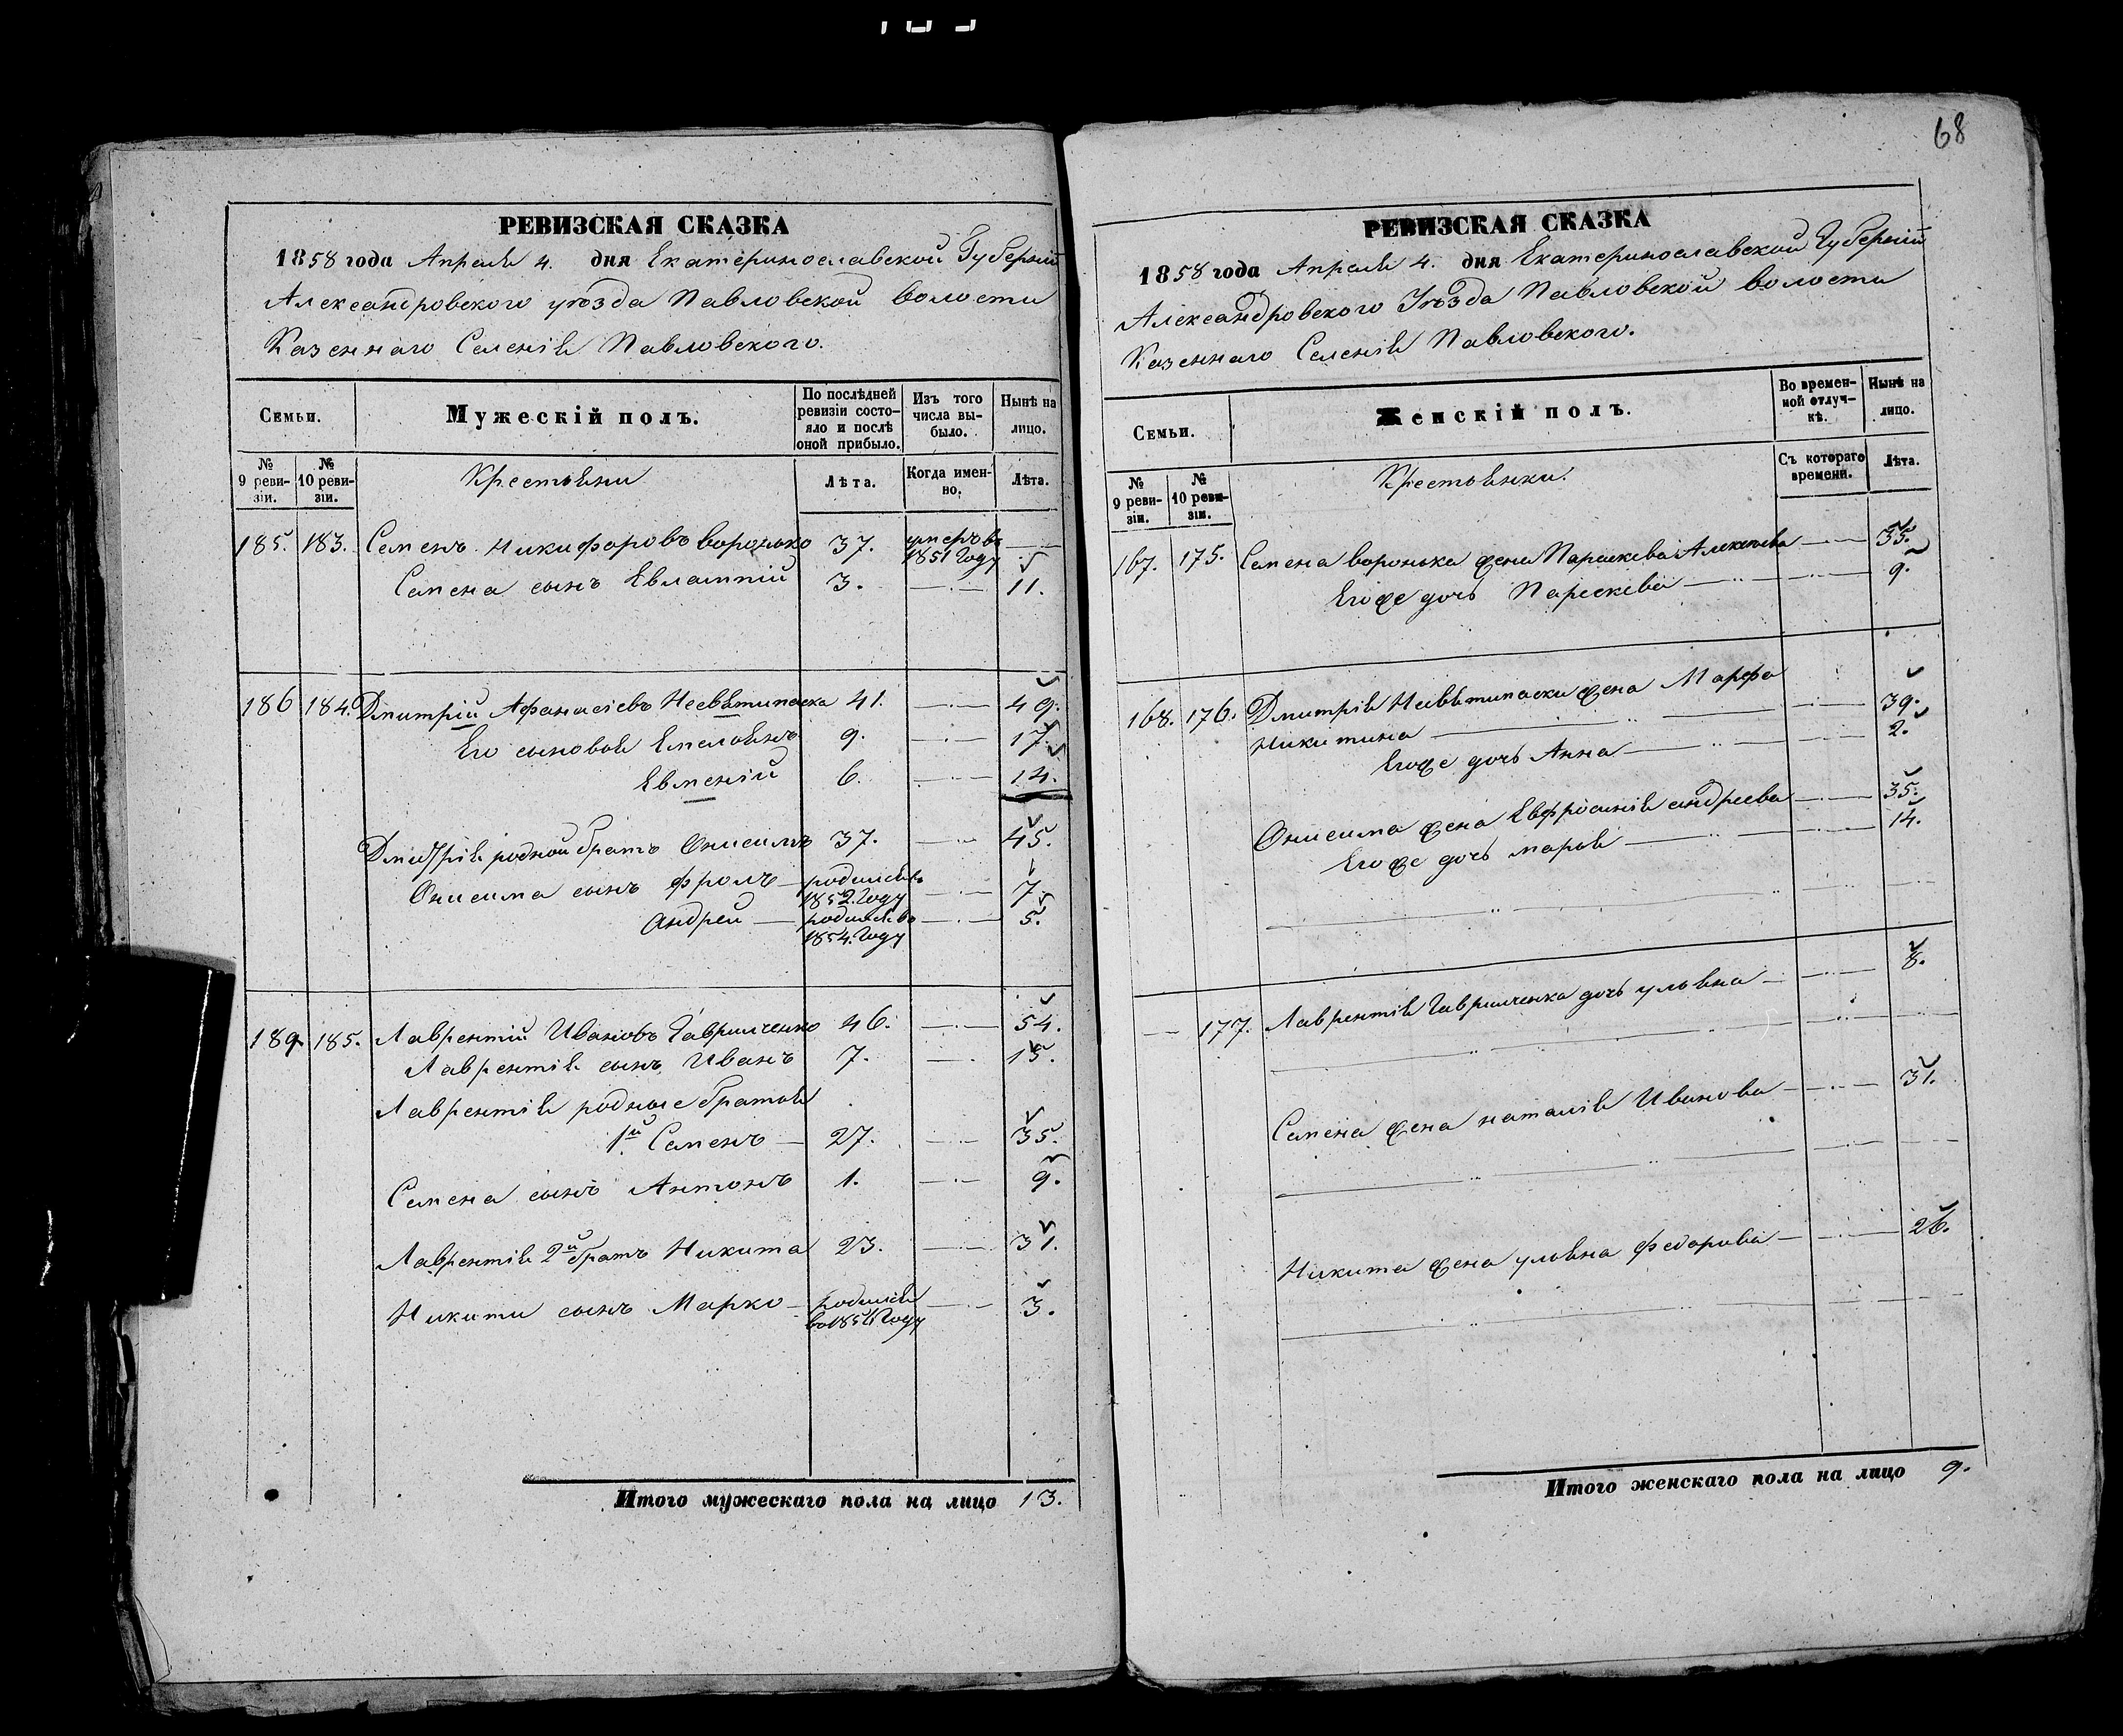 68
РЕВИЗСКАЯ СКАЗКА
1858 года Апреля 4. дня Екатеринославской Губерніи
Александровского уѣзда Павловской волости
Казеннаго Селенія Павловского.
Семьи.
Мужескій полъ.
По послѣдней ревизіи состояло и послѣ оной прибыло.
Изъ того числа выбыло.
Нынѣ на лицо.
№ 9 ревизіи.
№ 10 ревизіи.
Крестьяни
Лѣта.
Когда именно.
Лѣта.
185. 183. Семенъ Никифоровъ воронько 37. умеръ въ 1851 Году
Семена сынъ Евлампій 3. 11.
186 184. Дмитрій Афанасіевъ 41. 49.
Его сыновья Емельянъ 9. 17.
Евменій 6. 14.
Дмитрія родной братъ Онисимъ 37. 45.
Онисима сынъ фролъ родился въ 1852 Году 7.
андрей родился во 1854 Году 5.
189. 185. Лаврентій Ивановъ Гавриленко 46. 54.
Лаврентія сынъ Иванъ 7. 15.
Лаврентія родные братья
1й Семенъ 27. 35.
Семена сынъ Антонъ 1. 9.
Лаврентія 2й братъ Никита 23. 31.
Никиты сынъ Марко родился во 1856 Году 3.
Итого мужескаго пола на лицо 13.
РЕВИЗСКАЯ СКАЗКА
1858 года Апреля 4. дня Екатеринославской Губерніи
Александровского Уѣзда Павловской волости
Казеннаго Селенія Павловского.
Семьи.
Женскій полъ.
Во временной отлучкѣ.
Нынѣ на лицо.
№ 9 ревизіи.
№ 10 ревизіи.
Крестьянки.
Съ котораго времени.
Лѣта.
167. 175. Семена воронька жена Параскева Алексѣева 35.
Егоже дочь Параскева 9.
168. 176. Дмитрія жена Марфа
Никитина 39.
Егоже дочь Анна 2.
Онисима жена Евфросинія андреева 35.
Егоже дочь марья 14.
177. Лаврентія Гавриленка дочь ульяна 8.
Семена жена наталія Иванова 31.
Никита жена ульяна федорова 26.
Итого женскаго пола на лицо 9.